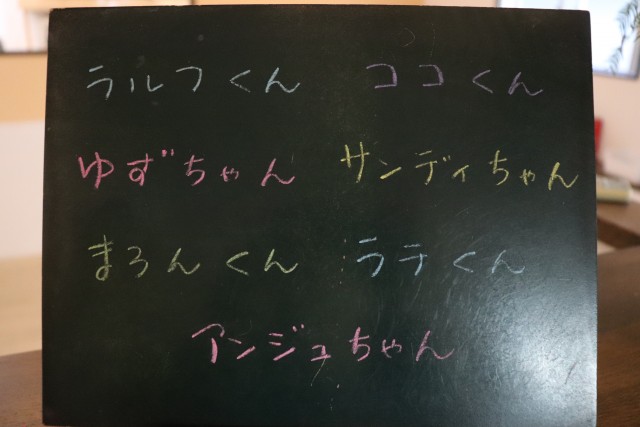 ラルフくん ココくん
ゆずちゃん サンディちゃん
まろんくん ラテくん
アンジュちゃん